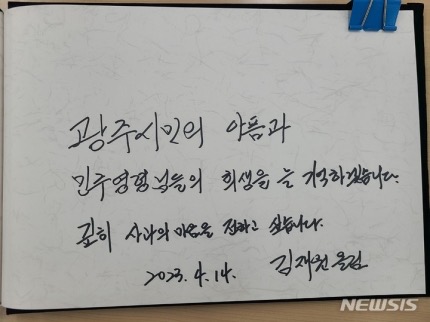 광주시민의 아픔과
민주영령님들의 희생을 늘 기억하겠습니다.
깊히 사과의 마음을 전하고 싶습니다.
2023. 4. 14. 김재원 올림
NEWSIS